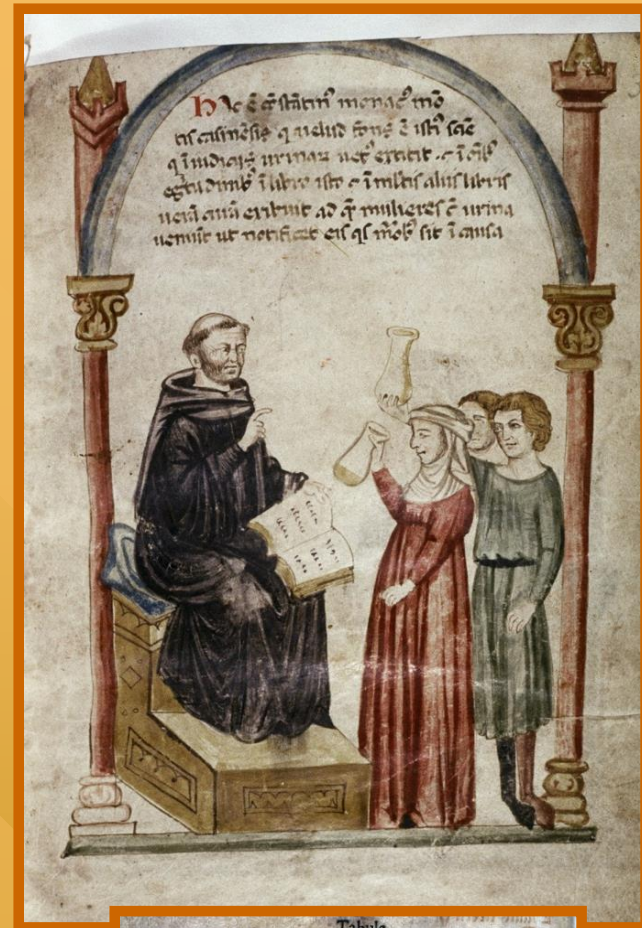 Hic ē cōstātin' monac' mō
tis casinēsis q velud fons ē isti' sciē
q i iudiciis urinar
egtudinib' i libro isto ⁊ i mltis aliis libris
verā curā exibuit ad q mulieres c urina
veniūt ut notificet eis qs morb' sit i causa
Tabula